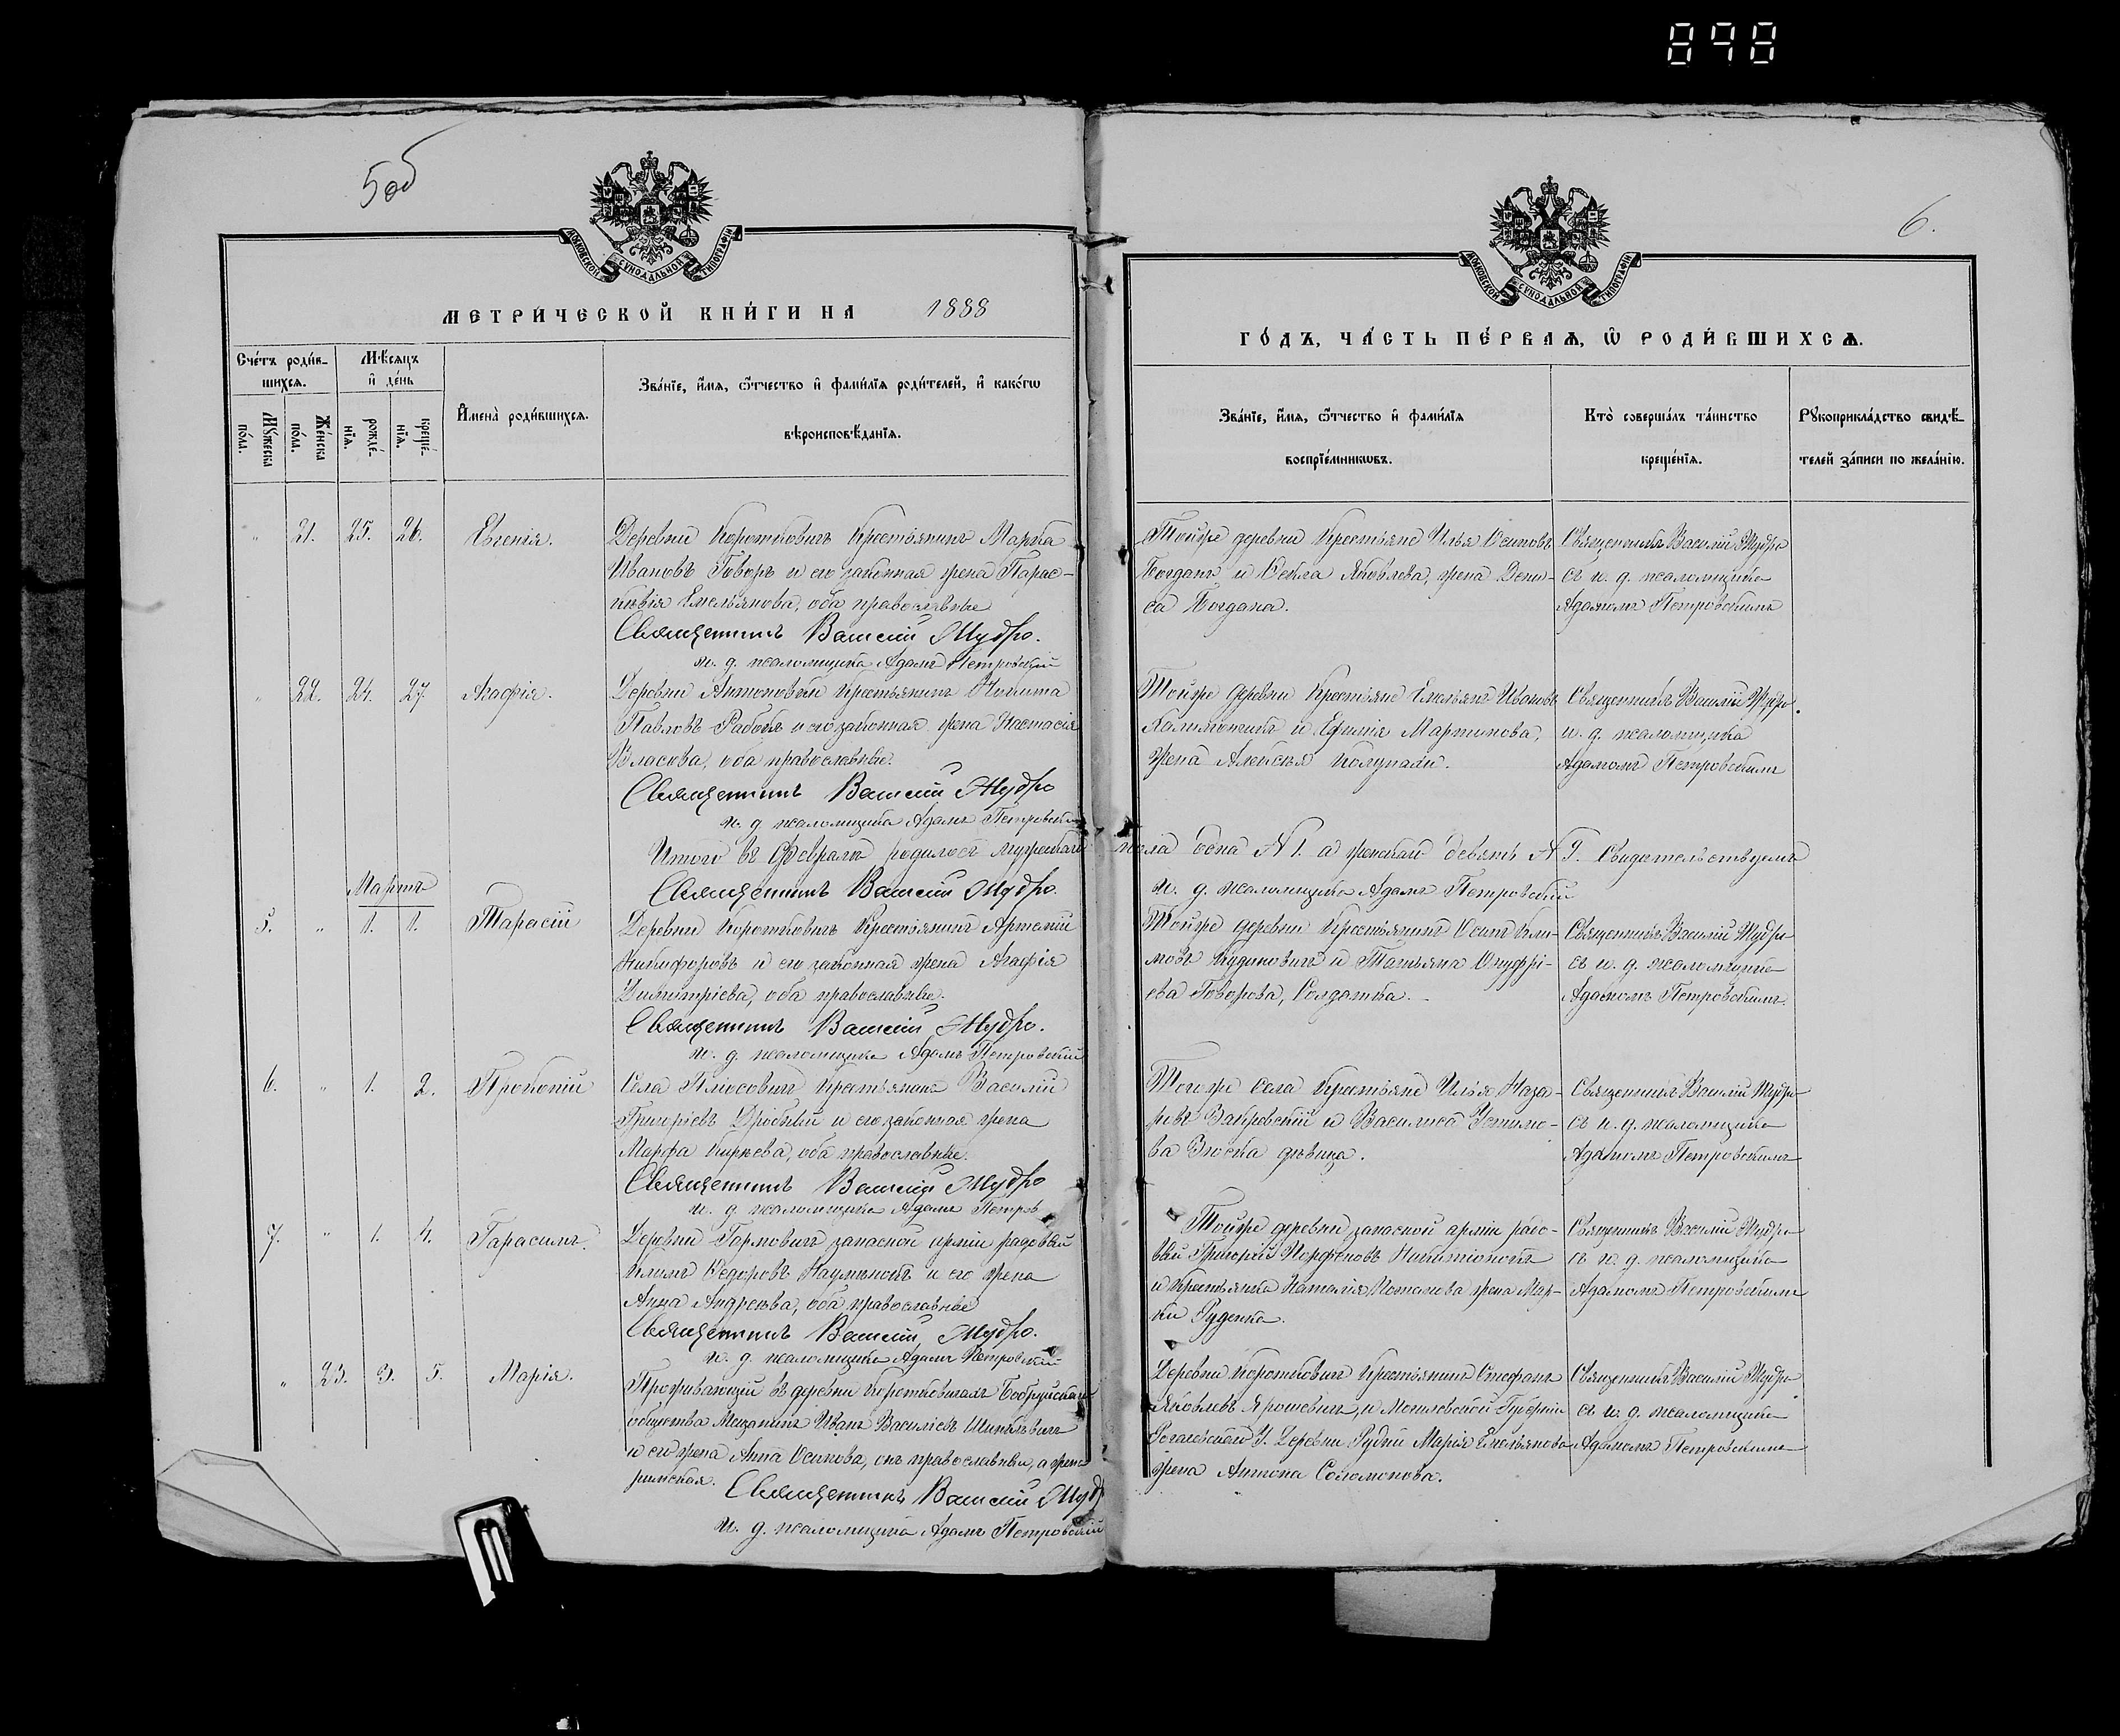 898
5об
МОСКОВСКОЙ СУНОДАЛЬНОЙ ТИПОГРАФІИ
МЕТРИЧЕСКОЙ КНИГИ НА 1888
Счетъ родив-
шихся.
Мѣсяцъ
и день
Мужеска пола.
Женска пола.
рожде-
нія.
креще-
нія.
Имена родившихся.
Званіе, имя, отчество и фамилія родителей, и какого
вѣроисповѣданія.
" 21. 25. 26. Евгенія.
Деревни Коротковичъ Крестьянинъ Марка
Ивановъ Говоръ и его законная жена Парас-
кевія Емельянова, оба православные
Священникъ Василій Мудро.
и. д. псаломщика Адамъ Петровскій
" 22. 24. 27. Агафія.
Деревни Антоновки Крестьянинъ Никита
Павловъ и его законная жена Настасія
Власова, оба православные.
Священникъ Василій Мудро
и. д. псаломщика Адамъ Петровскій
Итого въ Февралѣ родилось мужескаго
Священникъ Василій Мудро.
Мартъ
5. " 1. 1. Тарасій
Деревни Коротковичъ Крестьянинъ Артемій
Никифоровъ и его законная жена Агафія
Димитріева, оба православные.
Священникъ Василій Мудро.
и. д. псаломщика Адамъ Петровскій
6. " 1. 2. Прокопій
Села Плюсовичъ Крестьянинъ Василій
Григоріевъ Дробный и его законная жена
Марфа оба православные.
Священникъ Василій Мудро
и. д. псаломщика Адамъ Петров
7. " 1. 4. Гарасимъ.
Деревни Гармовичъ запасной арміи рядовый
Климъ Ѳедоровъ Науменокъ и его жена
Анна Андреева, оба православные
Священникъ Василій Мудро.
и. д. псаломщика Адамъ Петровскій
" 23. 3. 5. Марія.
Проживающій въ деревни Коротковичахъ Бобруйскаго
общества Мещанинъ Иванъ Василіевъ
и его жена Анна Осипова, онъ православный, а жена
римская.
Священникъ Василій Мудр
и. д. псаломщика Адамъ Петровскій
6.
МОСКОВСКОЙ СУНОДАЛЬНОЙ ТИПОГРАФІИ
ГОДЪ, ЧАСТЬ ПЕРВАЯ, Ѡ РОДИВШИХСЯ.
Званіе, имя, отчество и фамилія
воспріемниковъ.
Кто совершалъ таинство
крещенія.
Рукоприкладство свидѣ-
телей записи по желанію.
Тойже деревни Крестьяне Илья Осиповъ
Богданъ и Ѳекла Яковлева, жена Дени-
са Богдана.
Священникъ Василій Мудро
съ и. д. псаломщика
Адамомъ Петровскимъ
Тойже деревни Крестьяне Емельянъ Ивановъ
и Ефимія Мартинова,
жена Алексѣя
Священникъ Василій Мудро.
и. д. псаломщика
Адамомъ Петровскимъ
пола одна № 1. а женскаго девять № 9. Свидетельствуемъ
и. д. псаломщика Адамъ Петровскій
Тойже деревни Крестьянинъ Осипъ Кли-
мовъ и Татьяна Онуфрі-
ева Говорова, Солдатка. -
Священникъ Василій Мудро
съ и. д. псаломщика
Адамомъ Петровскимъ.
Тогоже села Крестьяне Илья Наза-
ровъ и Василиса Устино-
ва дѣвица.
Священникъ Василій Мудро
съ и. д. псаломщика
Адамомъ Петровскимъ
Тойже деревни запасной арміи рядо-
вый Григорій
и крестьянка Наталія Потапова жена Мар-
ки Руденка.
Священникъ Василій Мудро
съ и. д. псаломщика
Адамомъ Петровскимъ
Деревни Коротковичъ Крестьянинъ Стефанъ
Яковлевъ Ярошевичъ, и Могилевской Губерніи
Рогачевскаго У. Деревни Рудни Марія Емельянова
жена Антона Соломонова.
Священникъ Василій Мудро
съ и. д. псаломщика
Адамомъ Петровскимъ